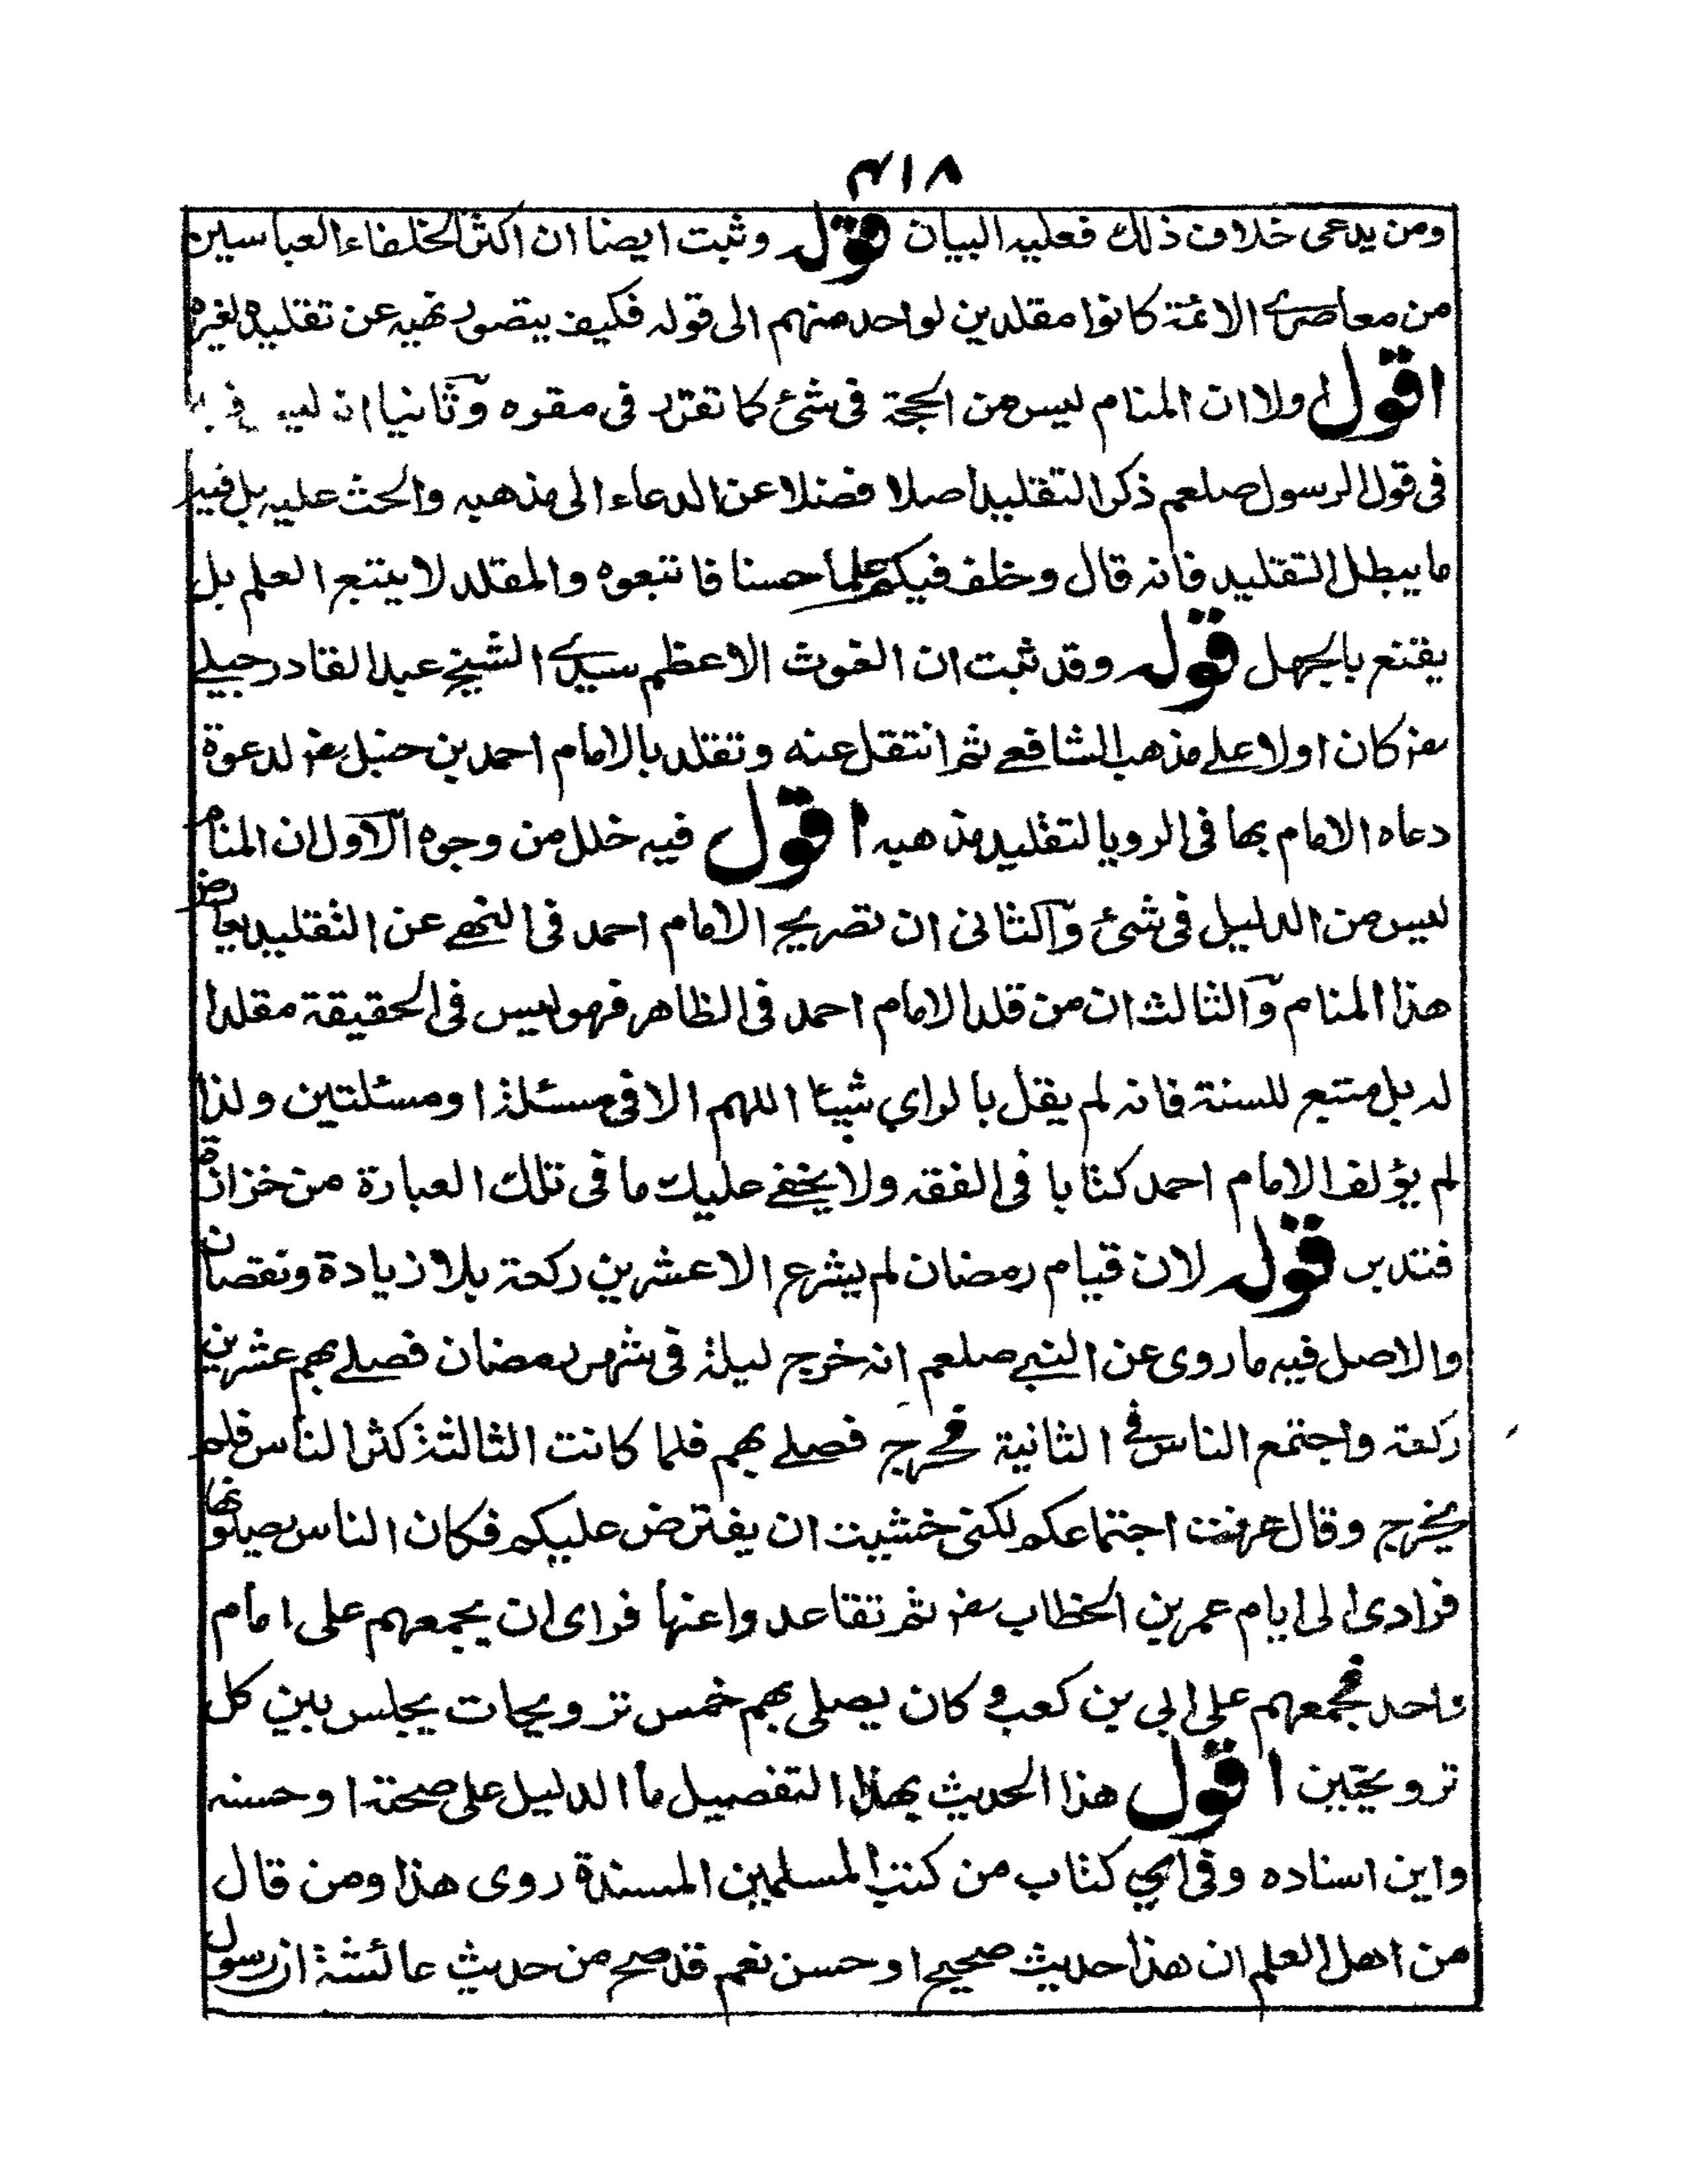 ٤١٨
ومن يدعى خلاف ذلك فعليه البيان قوله وثبت ايضا ان اكثر الخلفاء العباسيين
من معاصرے الائمة كانوا مقلدين لواحد منهم الى قوله فكيف يتصور نهيه عن تقليده لغيره
اقول اولا ان المنام ليس من الحجة فى شئ كما تقرر فى مقره وثانيا انه ليس
فى قول الرسول صلعم ذكر التقليد اصلا فضلا عن الدعاء الى مذهبه والحث عليه بل فيه
ما يبطل التقليد فانه قال وخلف فيكم علما حسنا فاتبعوه والمقلد لا يتبع العلم بل
يقنع بالجهل قوله وقد ثبت ان الغوث الاعظم سيدے الشيخ عبد القادر جيلے
رضه كان اولا علے مذهب الشافعے ثم انتقل عنه وتقلد بالامام احمد بن حنبل رضه لدعوة
دعاه الامام بها فى الرويا لتقليد مذهبه اقول فيه خلل من وجوه الاول ان المنام
ليس من الدليل فى شئ والثانى ان تصريح الامام احمد فى النهے عن التقليد يعارض
هذا المنام والثالث ان من قلد الامام احمد فى الظاهر فهو ليس فى الحقيقة مقلدا
له بل متبع للسنة فانه لم يقل بالراي شيئا اللهم الا فى مسئلة او مسئلتين ولذا
لم يؤلف الامام احمد كتابا فى الفقه ولا يخفے عليك ما فى تلك العبارة من خزانة
فتدبر قوله لان قيام رمضان لم يشرع الا عشرين ركعة بلا زيادة ونقصان
والاصل فيه ما روى عن النبے صلعم انه خرج ليلة فى شهر رمضان فصلے بهم عشرين
ركعة واجتمع الناس فے الثانية فخرج فصلے بهم فلما كانت الثالثة كثر الناس فلم
يخرج وقال عرفت اجتماعكم لكنى خشيت ان يفترض عليكم فكان الناس يصلونها
فرادى الى ايام عمر بن الخطاب رضه ثم تقاعدوا عنها فراى ان يجمعهم على امام
واحد فجمعهم على ابى بن كعب وكان يصلى بهم خمس ترويحات يجلس بين كل
ترويحتين اقول هذا الحديث بهذا التفصيل ما الدليل على صحته او حسنه
واين اسناده وفى اي كتاب من كتب المسلمين المسندة روى هذا ومن قال
من اهل العلم ان هذا حديث صحيح او حسن نعم قد صح من حديث عائشة ان رسول